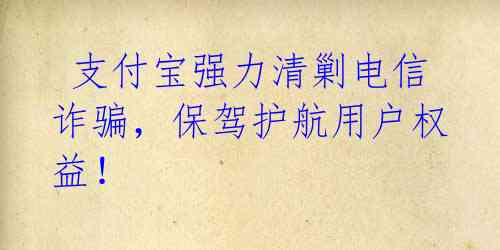 支付宝强力清剿电信
诈骗，保驾护航用户权
益！